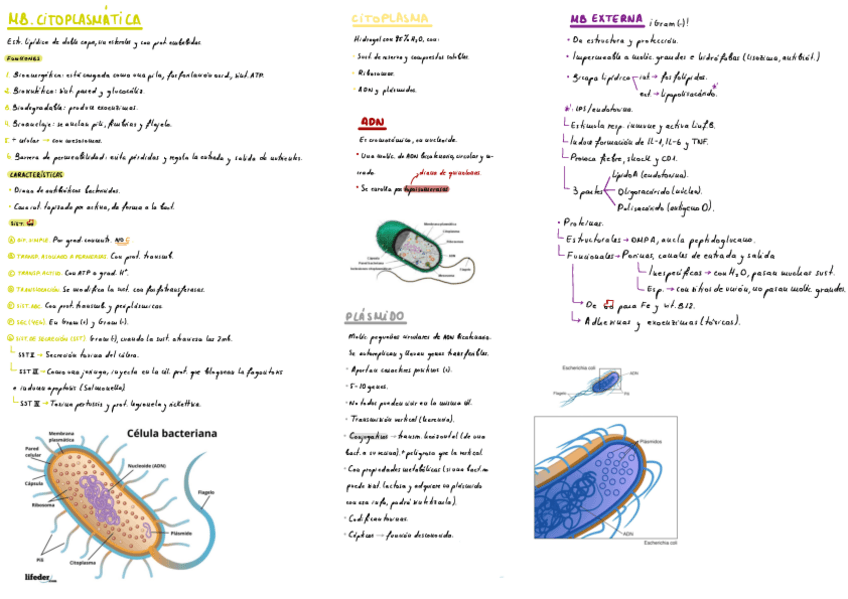 MB. CITOPLASMÁTICA
Estr. lipídica de doble capa, sin esteroles y con prot. embebidas.
FUNCIONES
1. Bioenergética: está cargada como una pila, fosforilación oxid., sint. ATP.
2. Biosintética: sint. pared y glucocáliz.
3. Biodegradable: produce exoenzimas.
4. Bioanclaje: se anclan pili, fimbrias y flagelo.
5. ÷ celular → con mesosomas.
6. Barrera de permeabilidad: evita pérdidas y regula la entrada y salida de nutrientes.
CARACTERÍSTICAS
· Diana de antibióticos bactericidas.
· tapizado por actina, da forma a la bact.
SIST.
DIF. SIMPLE. Por grad. concentr. NO
Con prot. transmb.
TRANSP. ACTIVO. Con ATP o grad. H⁺.
TRANSLOCACIÓN. Se modifica la mol. con fosfotransferasas.
SIST. ABC. Con prot. transmb. y periplásmicas.
SEC (YEK). En Gram(+) y Gram(-).
SIST. DE SECRECIÓN (SST). Gram(-), cuando la sust. atraviesa las 2 mb.
SST II → Secreción toxina del cólera.
SST III → Como una jeringa, inyecta en la cél. prot. que bloquean la fagocitosis
e inducen apoptosis (Salmonella)
SST IV → Toxina pertussis y prot. legionela y rickettsia.
Célula bacteriana
Membrana plasmática
Pared celular
Cápsula
Ribosoma
Pili
Citoplasma
Nucleoide (ADN)
Flagelo
Plásmido
lifeder
CITOPLASMA
Hidrogel con 85% H₂O, con:
· Sust. de reserva y compuestos solubles.
· Ribosomas.
· ADN y plásmidos.
ADN
Es cromosómico, en nucleoide.
• Una molec. de ADN bicatenario, circular y ce-
rrada.
diana de quinolonas.
• Se enrolla por topoisomerasas
PLÁSMIDO
Moléc. pequeñas circulares de ADN bicatenario.
Se autorreplican y llevan genes transferibles.
· Aportan caracteres positivos (+).
· 5-10 genes.
· No todos pueden vivir en la misma cél.
· Transmisión vertical (herencia).
· Conjugativos → transm. horizontal (de una
bact. a su vecina). + peligroso que la vertical.
· Con propiedades metabólicas (si una bact. no
puede sint. lactosa y adquiere un plásmido
que sí, podrá sintetizarla).
· Codifican toxinas.
· Crípticos → función desconocida.
MB EXTERNA ¡Gram(-)!
• Da estructura y protección.
• Impermeable a moléc. grandes e hidrófobas (lisozima, antibiót.)
• Bicapa lipídica int. → fosfolípidos.
ext. → lipopolisacárido.*
*: LPS/endotoxina.
Estimula resp. inmune y activa Linf. B.
Induce formación de IL-1, IL-6 y TNF.
Provoca fiebre, shock y CID.
3 partes
Lípido A (endotoxina).
Oligosacárido (núcleo).
Polisacárido (antígeno O).
• Proteínas.
Estructurales → OMPA, ancla peptidoglucano.
Funcionales → Porinas, canales de entrada y salida
Inespecíficas → con H₂O, pasan muchas sust.
Esp. → con sitios de unión, no pasan moléc. grandes.
De para Fe y vit. B12.
Adhesinas y exoenzimas (tóxicas).
Escherichia coli
ADN
Flagelo
Pili
Plásmidos
ADN
Escherichia coli